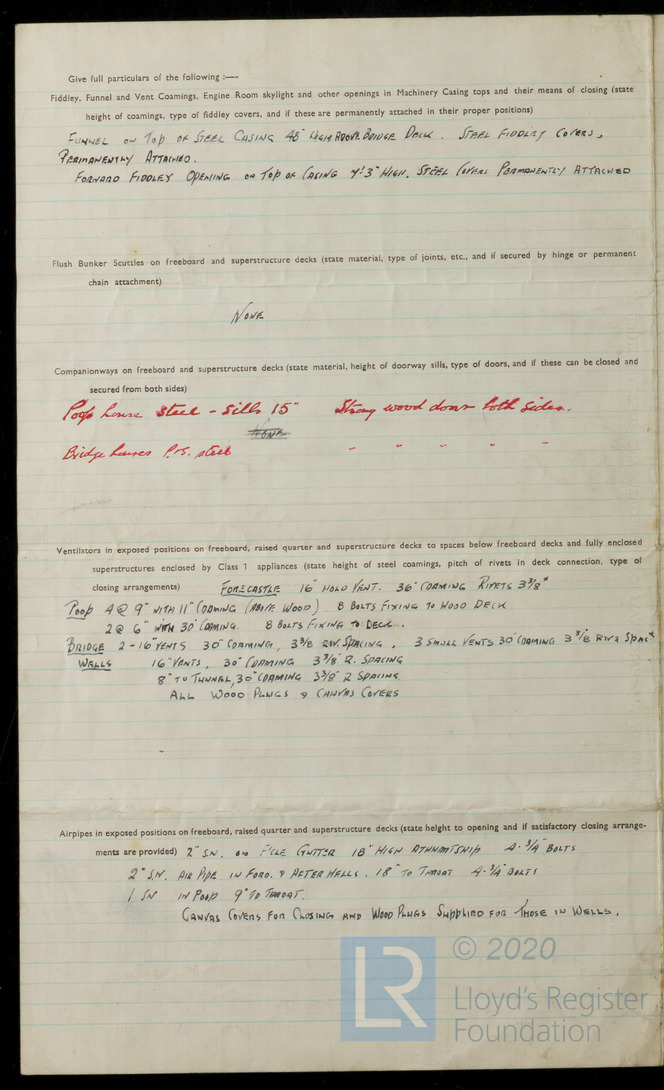 Give full particulars of the following :—
Fiddley, Funnel and Vent Coamings, Engine Room skylight and other openings in Machinery Casing tops and their means of closing (state
height of coamings, type of fiddley covers, and if these are permanently attached in their proper positions)
FUNNEL ON TOP OF STEEL CASING 48" HIGH ABOVE BRIDGE DECK. STEEL FIDDLEY COVERS,
PERMANENTLY ATTACHED.
FORWARD FIDDLEY OPENING ON TOP OF CASING 7'.3" HIGH. STEEL COVERS PERMANENTLY ATTACHED
Flush Bunker Scuttles on freeboard and superstructure decks (state material, type of joints, etc., and if secured by hinge or permanent
chain attachment)
NONE
Companionways on freeboard and superstructure decks (state material, height of doorway sills, type of doors, and if these can be closed and
secured from both sides)
Poop house steel - Sills 15" Strong wood doors both sides.
NONE
Bridge houses P.&S. steel " " " " "
Ventilators in exposed positions on freeboard, raised quarter and superstructure decks to spaces below freeboard decks and fully enclosed
superstructures enclosed by Class 1 appliances (state height of steel coamings, pitch of rivets in deck connection, type of
closing arrangements) FORECASTLE 16" HOLD VENT. 36" COAMING RIVETS 3 3/8"
POOP 4 @ 9" WITH 11" COAMING (ABOVE WOOD) 8 BOLTS FIXING TO WOOD DECK
2 @ 6" WITH 30" COAMING. 8 BOLTS FIXING TO DECK.
BRIDGE 2 - 16" VENTS 30" COAMING, 3 3/8 RIV. SPACING. 3 SMALL VENTS 30" COAMING 3 3/8 RIV. SPACG
WELLS 16" VENTS, 30" COAMING 3 3/8" R. SPACING
8" TO TUNNEL, 30" COAMING 3 3/8" R SPACING
ALL WOOD PLUGS & CANVAS COVERS
Airpipes in exposed positions on freeboard, raised quarter and superstructure decks (state height to opening and if satisfactory closing arrange-
ments are provided) 2" S.N. ON F'CLE GUTTER 18" HIGH ATHWARTSHIP 4 - 3/4" BOLTS
2" S.N. AIR PIPE IN FORD. & AFTER WELLS. 18" TO THROAT 4 - 3/4" BOLTS
1 SN IN POOP 9" TO THROAT.
CANVAS COVERS FOR CLOSING AND WOOD PLUGS SUPPLIED FOR THOSE IN WELLS.
LR
© 2020
Lloyd's Register
Foundation